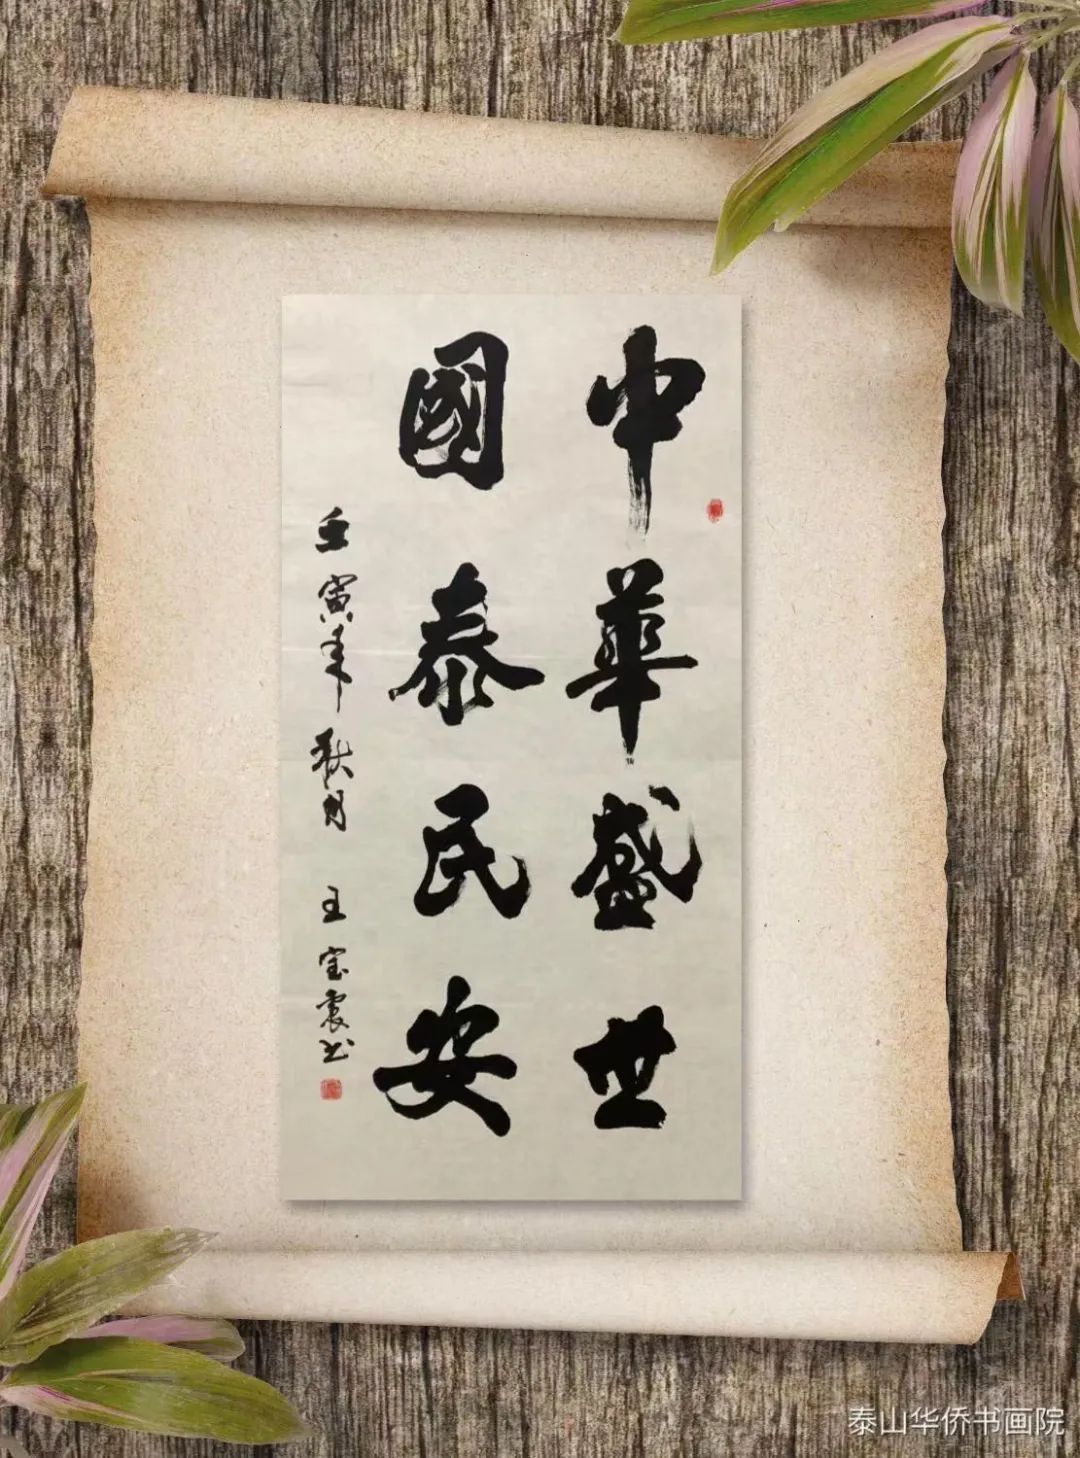 中華盛世
國泰民安
壬寅年秋月 王宝震书
泰山华侨书画院